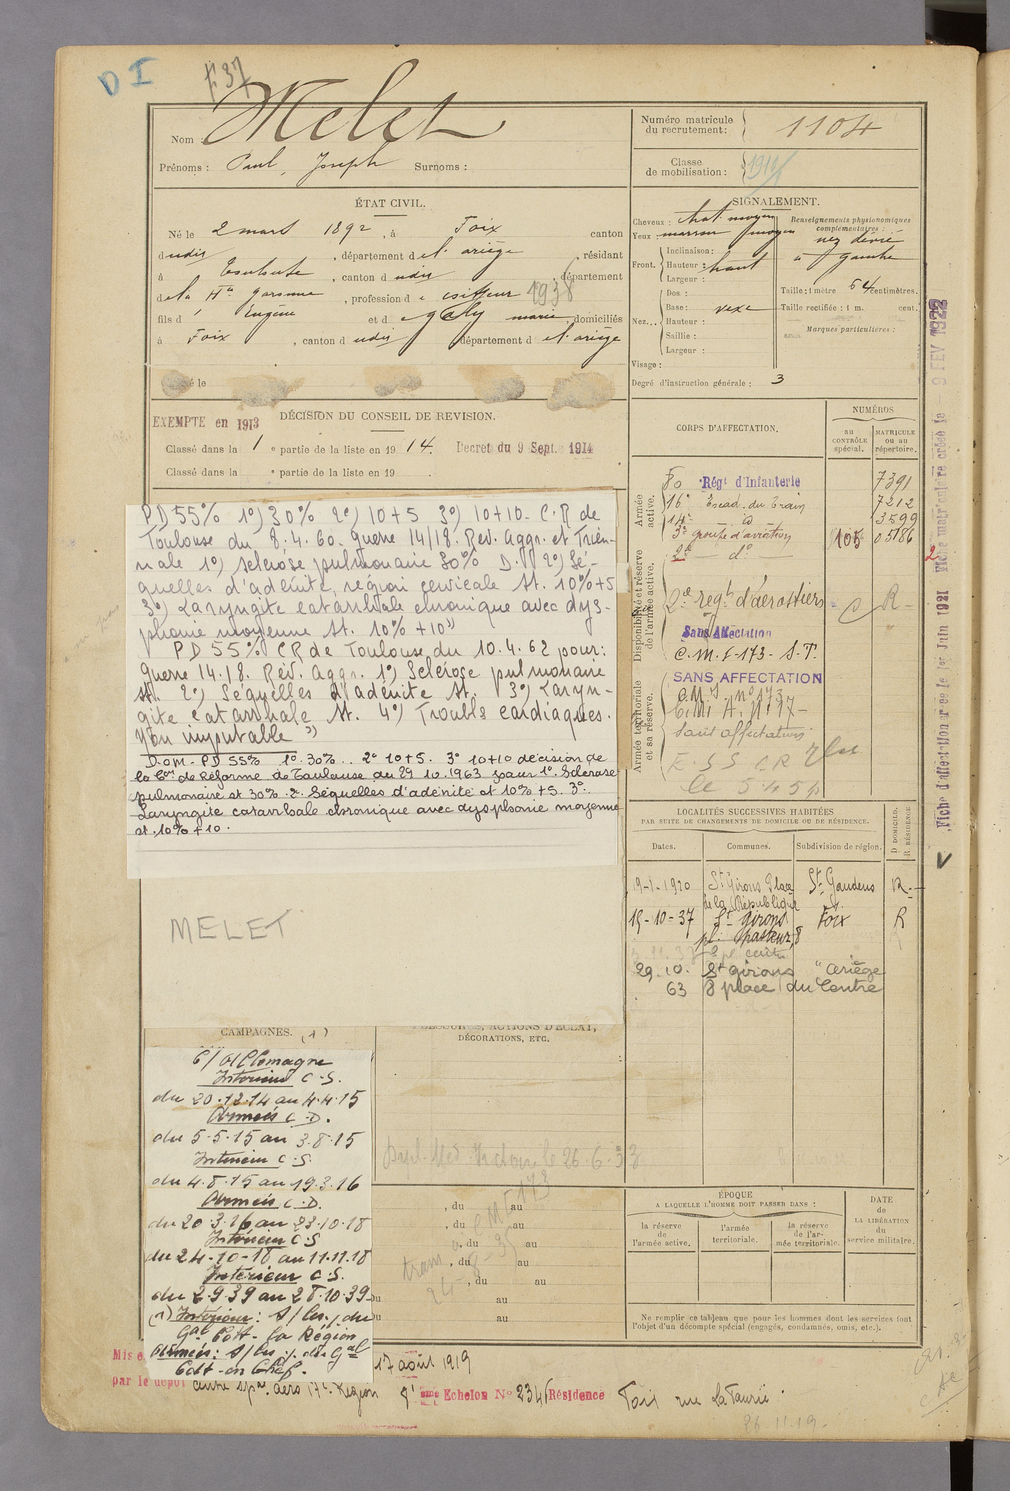 D I
F 37
Nom : Melet
Prénoms : Paul, Joseph Surnoms :
Numéro matricule du recrutement : 1104
Classe de mobilisation :
ÉTAT CIVIL.
Né le 2 mars 1892, à Foix canton
dudit, département de l'ariège, résidant
à Toulouse, canton dudit, département
de la Hte garonne, profession de coiffeur 1938
fils d' Eugène et de galy marie, domiciliés
à Foix, canton dudit département de l'ariège
SIGNALEMENT.
Cheveux : chat moyen
Yeux : marron moyen
Front. Inclinaison :
Hauteur : haut
Largeur :
Nez... Dos :
Base : vexe
Hauteur :
Saillie :
Largeur :
Visage :
Degré d'instruction générale : 3
Renseignements physionomiques complémentaires :
nez dévié
à gauche
Taille : 1 mètre 64 centimètres.
Taille rectifiée : 1 m. cent.
Marques particulières :
le
DÉCISION DU CONSEIL DE REVISION.
EXEMPTE en 1913
Classé dans la 1e partie de la liste en 1914. Decret du 9 Sept. 1914
Classé dans la e partie de la liste en 19
PD 55% 1°) 30% 2°) 10+5 3°) 10+10. C.R de
Toulouse du 8.4.60. guerre 14/18. Rév. Aggr. et Trien-
nale 1°) sclérose pulmonaire 30% D. 2°) Sé-
quelles d'adénite, région cervicale st. 10%+5
3°) Laryngite catarrhale chronique avec dys-
phonie moyenne st. 10%+10"
PD 55% CR de Toulouse du 10.4.62 pour:
guerre 14.18. Rév. Aggr. 1°) Sclérose pulmonaire
st. 2°) Séquelles d'adénite st. 3°) Laryn-
gite catarrhale st. 4°) Troubles cardiaques.
Non imputable"
D.O.M. PD 55% 1° 30%.. 2° 10+5. 3° 10+10 décision de
la Con de Réforme de Toulouse du 29 10.1963 pour 1° Sclérose
pulmonaire st 30%. 2° Séquelles d'adénite st 10% +5. 3°.
Laryngite catarrhale chronique avec dysphonie moyenne
st. 10% + 10.
MELET
CORPS D'AFFECTATION.
NUMÉROS
AU CONTRÔLE spécial.
MATRICULE ou au répertoire.
Armée active.
80 Régt d'Infanterie 7391
16e Escad. du Train 7212
14e d° 3599
3e groupe d'aviation 105 05186
2e d°
Disponibilité et réserve de l'armée active.
2e regt d'aérostiers C R -
Sans Affectation
C.M.I-173- S.T.
Armée territoriale et sa réserve.
SANS AFFECTATION
C.M.I. n° 173
Sans affectation
le 5454
LOCALITÉS SUCCESSIVES HABITÉES
PAR SUITE DE CHANGEMENTS DE DOMICILE OU DE RÉSIDENCE.
Dates. Communes. Subdivision de région. D DOMICILE. R RÉSIDENCE.
19-1-1920 St Girons Place de la République St Gaudens R.
15-10-37 St girons pl. Pasteur, 8 Foix R
29.10.63 St girons 8 place du Centre Ariège
CAMPAGNES. (1)
C/ Allemagne
Intérieur C.S.
du 20.12.14 au 4.4.15
Armées C.D.
du 5.5.15 au 3.8.15
Intérieur C.S.
du 4.8.15 au 19.3.16
Armées C.D.
du 20.3.16 au 23.10.18
Intérieur C.S
du 24-10-18 au 11.11.18
Intérieur C.S.
du 2.9.39 au 28.10.39
DÉCORATIONS, ETC.
26-6-33
, du au
, du au
, du au
, du au
, du au
au
au
ÉPOQUE
A LAQUELLE L'HOMME DOIT PASSER DANS :
la réserve de l'armée active.
l'armée territoriale.
la réserve de l'armée territoriale.
DATE DE LA LIBÉRATION du service militaire.
Ne remplir ce tableau que pour les hommes dont les services font
l'objet d'un décompte spécial (engagés, condamnés, omis, etc.).
17 août 1919
par le dépôt
Echelon N° 2345 Résidence Foix rue La Faurie
26.11.19-
Fiche d'affectation créée le 1er Juin 1921
Fiche matriculaire créée le 9 FEV 1922